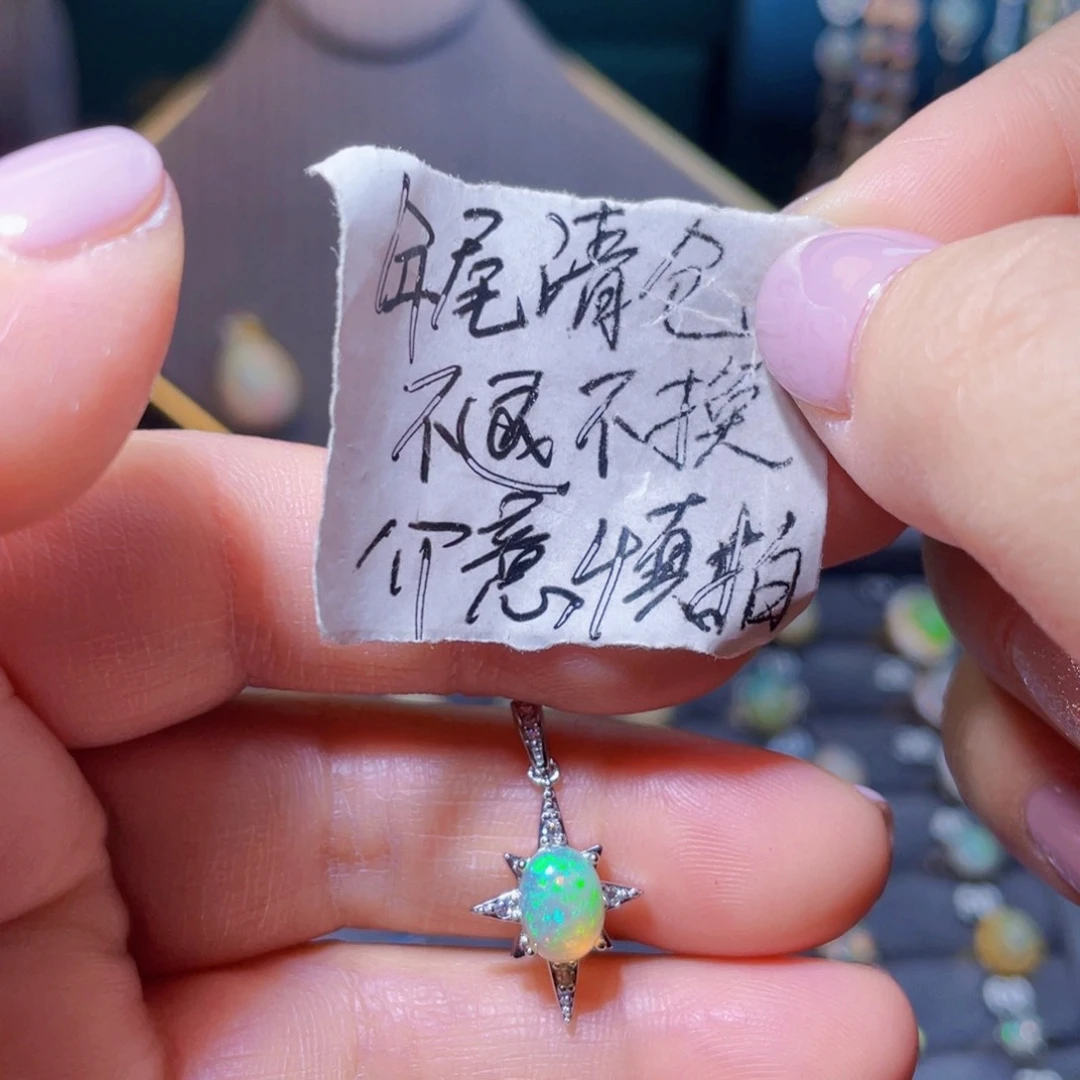 年尾清仓
不退不换
介意慎拍